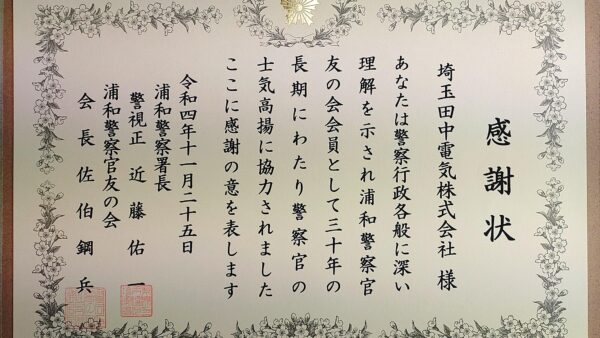 感謝状
埼玉田中電気株式会社 様
あなたは警察行政各般に深い
理解を示され浦和警察官
友の会会員として三十年の
長期にわたり警察官の
士気高揚に協力されました
ここに感謝の意を表します
令和四年十一月二十五日
浦和警察署長
警視正 近藤佑一
浦和警察官友の会
会長 佐伯鋼兵